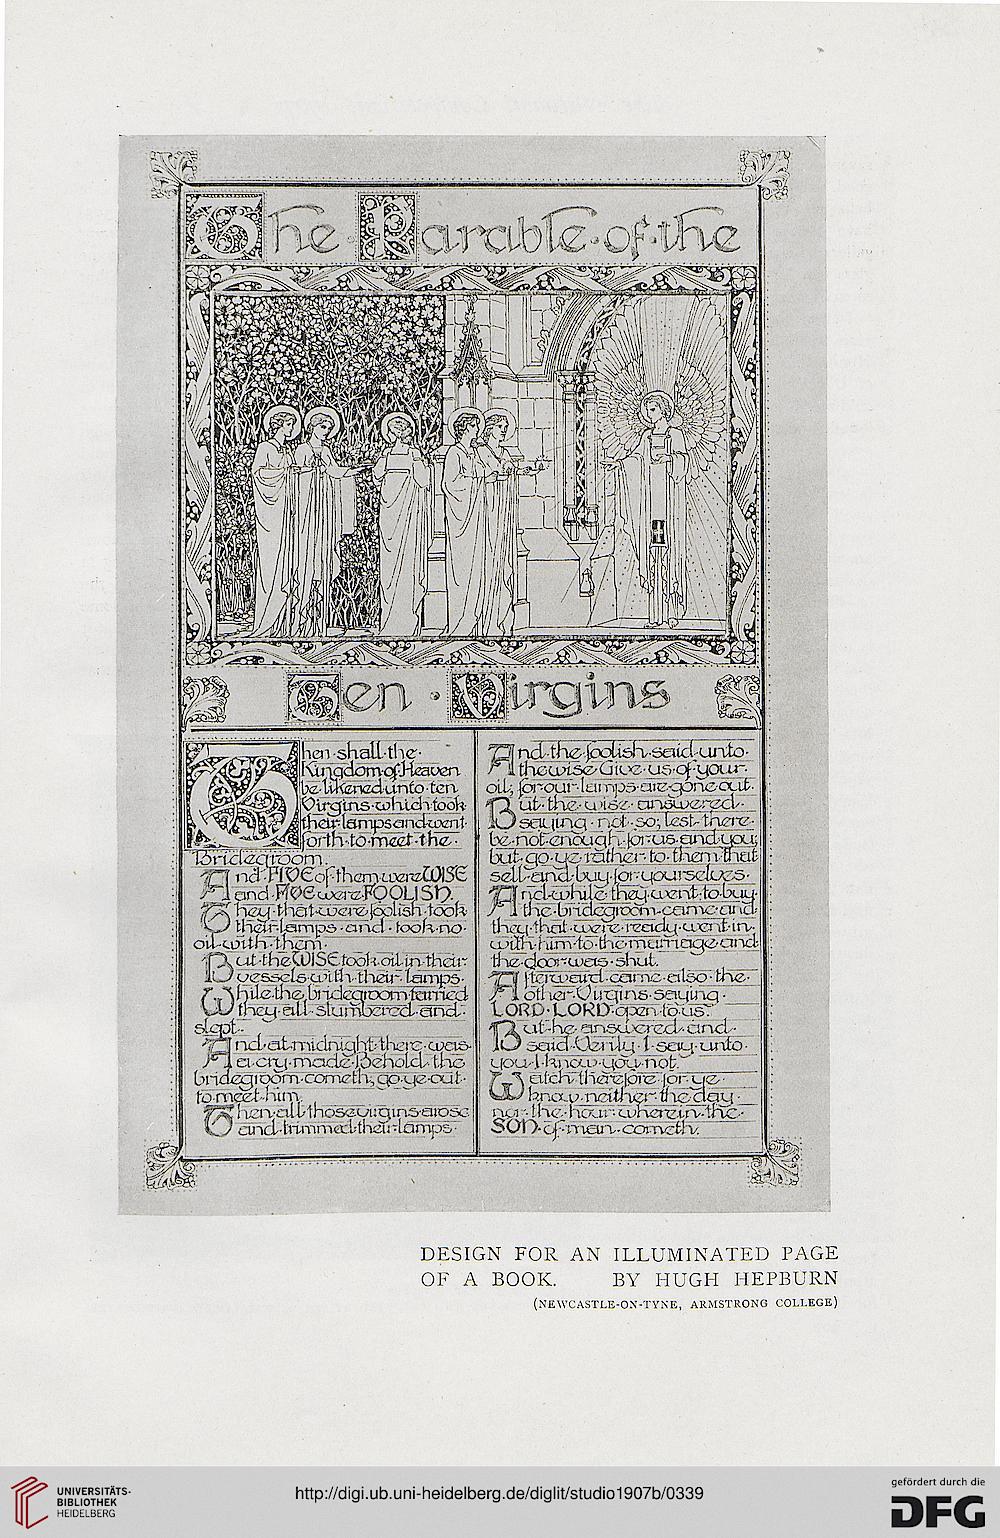 The · Parable · of · the
Ten · Virgins
Then · shall · the ·
Kingdom · of · Heaven
be · likened · unto · ten
Virgins · which · took
their · lamps and went
forth · to · meet · the ·
Bridegroom ·
And FIVE of them were WISE
and FIVE were FOOLISH.
They · that · were foolish · took
their · lamps · and · took · no ·
oil · with · them ·
But the WISE took oil in their
vessels with · their · lamps ·
While the bridegroom tarried
they · all · slumbered · and ·
slept ·
And · at · midnight · there · was ·
a · cry · made · Behold · the
bridegroom · cometh; go · ye · out ·
to · meet · him
Then · all · those virgins arose
and · trimmed · their · lamps ·
And · the · foolish · said · unto ·
the wise · Give · us · of · your ·
oil; for · our · lamps · are · gone out ·
But · the · wise · answered ·
saying · not · so; lest · there ·
be · not · enough · for · us · and you;
but · go · ye · rather · to · them that
sell · and · buy · for · yourselves ·
And · while they · went · to · buy ·
the · bridegroom · came · and
they · that · were · ready · went · in ·
with · him · to · the marriage · and
the · door · was · shut ·
Afterward · came · also · the ·
other · Virgins · saying ·
LORD · LORD · open · to us ·
But · he · answered · and ·
said · Verily · I · say · unto ·
you · I · know · you · not ·
Watch · therefore · for · ye ·
know · neither · the day ·
nor · the · hour · wherein · the ·
SON · of · man · cometh.
DESIGN FOR AN ILLUMINATED PAGE
OF A BOOK. BY HUGH HEPBURN
(NEWCASTLE-ON-TYNE, ARMSTRONG COLLEGE)
UNIVERSITÄTS-
BIBLIOTHEK
HEIDELBERG
http://digi.ub.uni-heidelberg.de/diglit/studio1907b/0339
gefördert durch die
DFG